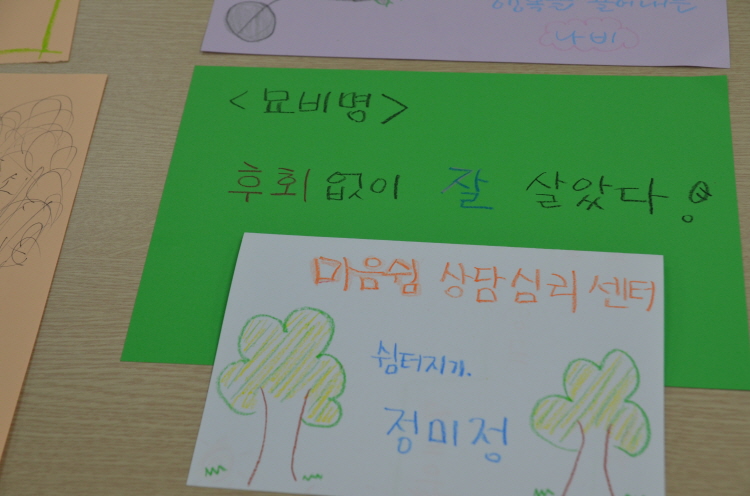 나비
<묘비명>
후회없이 잘 살았다!
마음쉼 상담심리센터
쉼터지기.
정미정